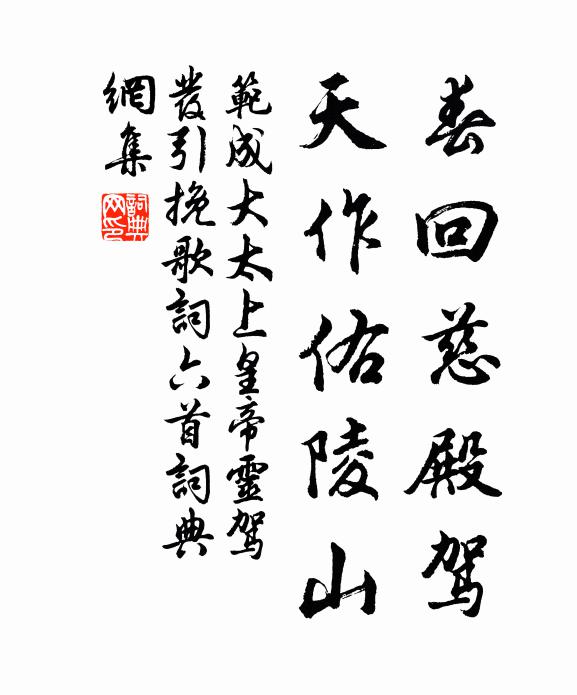 春回慈殿駕
天作佑陵山
範成大太上皇帝靈駕
發引挽歌詞六首詞典
網集
詞典网印